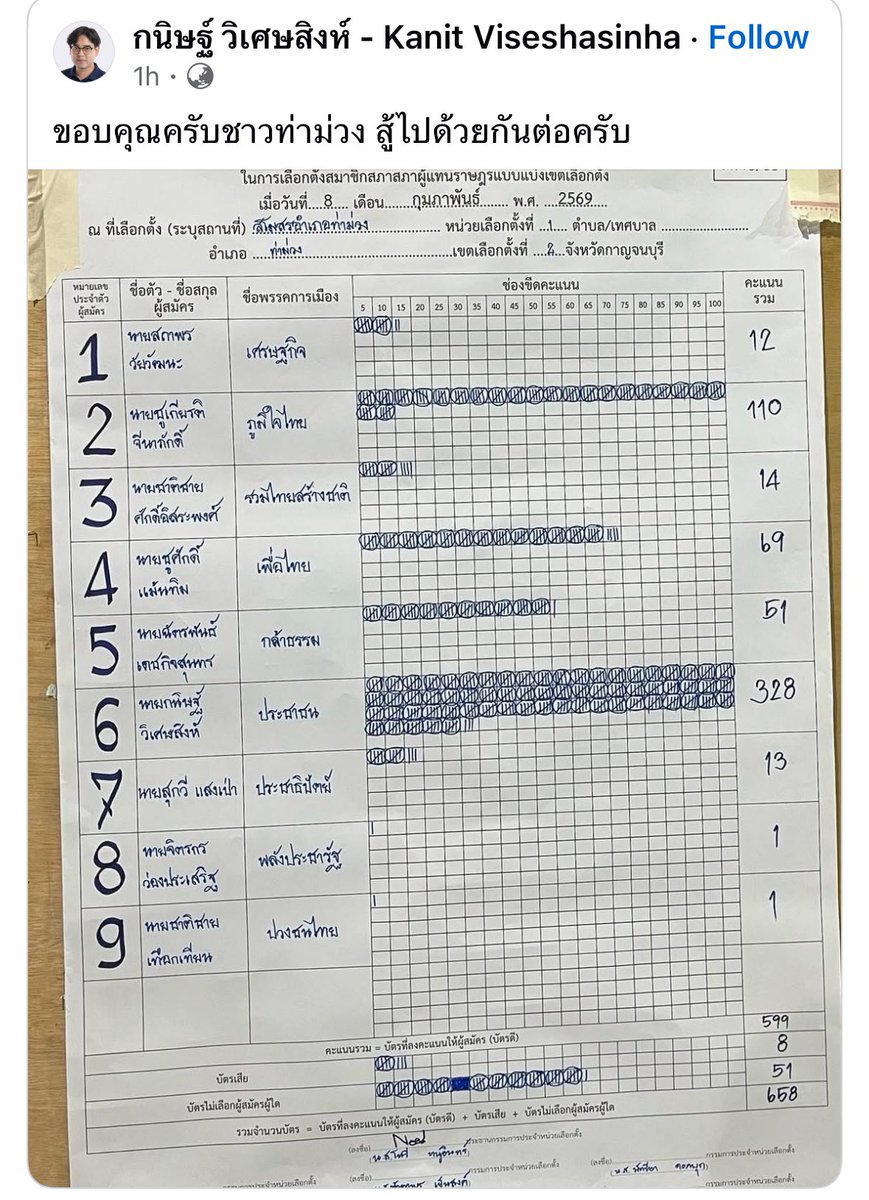 กนิษฐ์ วิเศษสิงห์ - Kanit Viseshasinha · Follow
1h ·
ขอบคุณครับชาวท่าม่วง สู้ไปด้วยกันต่อครับ
ในการเลือกตั้งสมาชิกสภาผู้แทนราษฎรแบบแบ่งเขตเลือกตั้ง
เมื่อวันที่....8.... เดือน........กุมภาพันธ์........ พ.ศ. ....2569........
ณ ที่เลือกตั้ง (ระบุสถานที่) สโมสรอำเภอท่าม่วง หน่วยเลือกตั้งที่ ..1.... ตำบล/เทศบาล ........................
อำเภอ ....ท่าม่วง........ เขตเลือกตั้งที่ ....2.. จังหวัดกาญจนบุรี
หมายเลขประจำตัวผู้สมัคร ชื่อตัว - ชื่อสกุลผู้สมัคร ชื่อพรรคการเมือง ช่องขีดคะแนน คะแนนรวม
5 10 15 20 25 30 35 40 45 50 55 60 65 70 75 80 85 90 95 100
1 นายสถาพร วัยวัฒนะ เศรษฐกิจ 12
2 นายชูเกียรติ จีนาภักดิ์ ภูมิใจไทย 110
3 นายชาติชาย ศักดิ์อิสระพงศ์ รวมไทยสร้างชาติ 14
4 นายชูศักดิ์ แม้นทิม เพื่อไทย 69
5 นายฉัตรพันธ์ เดชกิจสุนทร กล้าธรรม 51
6 นายกนิษฐ์ วิเศษสิงห์ ประชาชน 328
7 นายสุกวี แสงเป่า ประชาธิปัตย์ 13
8 นายจิตรกร ว่องประเสริฐ พลังประชารัฐ 1
9 นายชาติชาย เผือกเทียน ปวงชนไทย 1
คะแนนรวม = บัตรที่ลงคะแนนให้ผู้สมัคร (บัตรดี) 599
บัตรเสีย 8
บัตรไม่เลือกผู้สมัครผู้ใด 51
รวมจำนวนบัตร = บัตรที่ลงคะแนนให้ผู้สมัคร (บัตรดี) + บัตรเสีย + บัตรไม่เลือกผู้สมัครผู้ใด 658
(ลงชื่อ) ประธานกรรมการประจำหน่วยเลือกตั้ง
(ลงชื่อ) กรรมการประจำหน่วยเลือกตั้ง (ลงชื่อ) กรรมการประจำหน่วยเลือกตั้ง